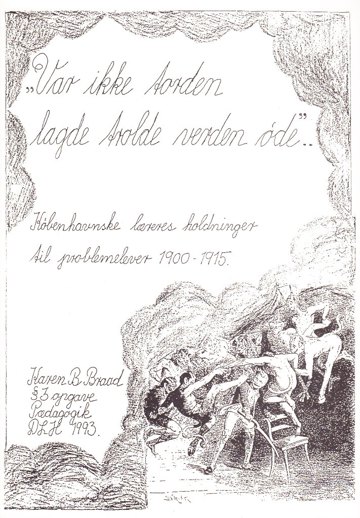 „Var ikke torden
lagde trolde verden øde”..
Københavnske læreres holdninger
til problemelever 1900-1915.
Karen B. Braad
§ 3 opgave
Pædagogik
DLH 1993.